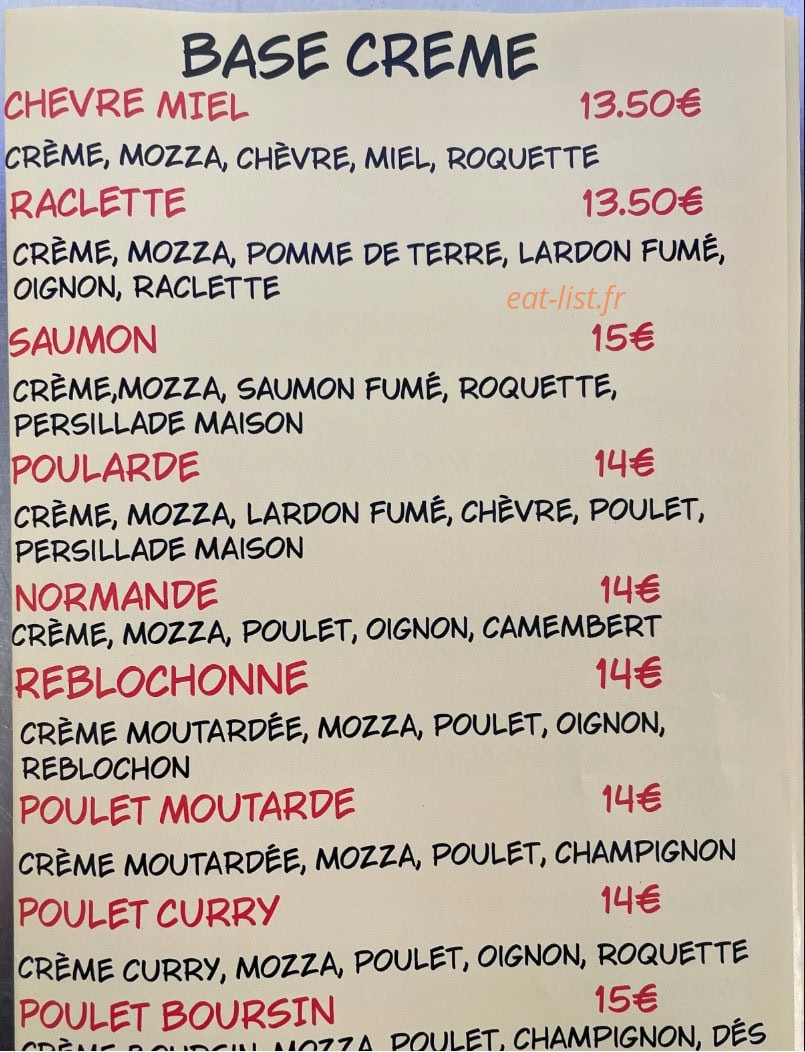 BASE CREME
CHEVRE MIEL 13.50€
CRÈME, MOZZA, CHÈVRE, MIEL, ROQUETTE
RACLETTE 13.50€
CRÈME, MOZZA, POMME DE TERRE, LARDON FUMÉ,
OIGNON, RACLETTE
eat-list.fr
SAUMON 15€
CRÈME,MOZZA, SAUMON FUMÉ, ROQUETTE,
PERSILLADE MAISON
POULARDE 14€
CRÈME, MOZZA, LARDON FUMÉ, CHÈVRE, POULET,
PERSILLADE MAISON
NORMANDE 14€
CRÈME, MOZZA, POULET, OIGNON, CAMEMBERT
REBLOCHONNE 14€
CRÈME MOUTARDÉE, MOZZA, POULET, OIGNON,
REBLOCHON
POULET MOUTARDE 14€
CRÈME MOUTARDÉE, MOZZA, POULET, CHAMPIGNON
POULET CURRY 14€
CRÈME CURRY, MOZZA, POULET, OIGNON, ROQUETTE
POULET BOURSIN 15€
CRÈME BOURSIN, MOZZA, POULET, CHAMPIGNON, DÉS